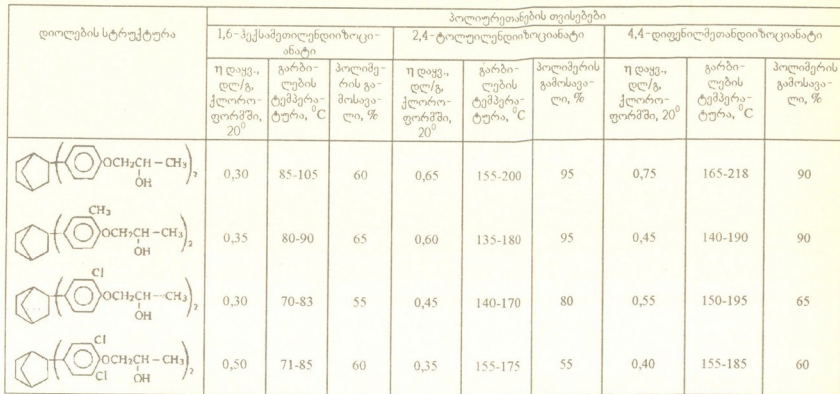 პოლიურეთანების თვისებები
დიოლების სტრუქტურა
1,6-ჰექსამეთილენდიიზოცი-
ანატი
2,4-ტოლუილენდიიზოციანატი
4,4-დიფენილმეთანდიიზოციანატი
η დაყვ., დლ/გ, ქლორო-ფორმში, 20⁰
გარბი-ლების ტემპერა-ტურა, ⁰C
პოლიმე-რის გა-მოსავა-ლი, %
η დაყვ., დლ/გ, ქლორო-ფორმში, 20⁰
გარბი-ლების ტემპერა-ტურა, ⁰C
პოლიმერის გამოსავა-ლი, %
η დაყვ., დლ/გ, ქლორო-ფორმში, 20⁰
გარბი-ლების ტემპერა-ტურა, ⁰C
პოლიმერის გამოსავა-ლი, %
OCH₂CH–CH₃ 2 0,30 85-105 60 0,65 155-200 95 0,75 165-218 90
OH
CH₃
OCH₂CH–CH₃ 2 0,35 80-90 65 0,60 135-180 95 0,45 140-190 90
OH
Cl
OCH₂CH–CH₃ 2 0,30 70-83 55 0,45 140-170 80 0,55 150-195 65
OH
Cl
OCH₂CH–CH₃ 2 0,50 71-85 60 0,35 155-175 55 0,40 155-185 60
Cl OH